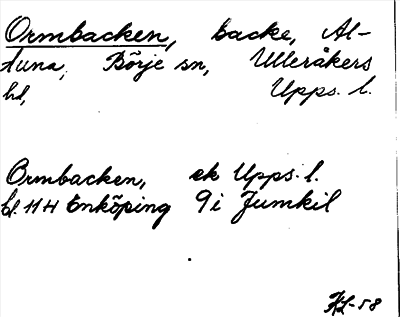 Ormbacken, backe, Al-
tuna, Börje sn, Ulleråkers
hd, Upps. l.
Ormbacken, ek Upps. l.
bl. 11 H Enköping 9 i Jumkil
HS-58